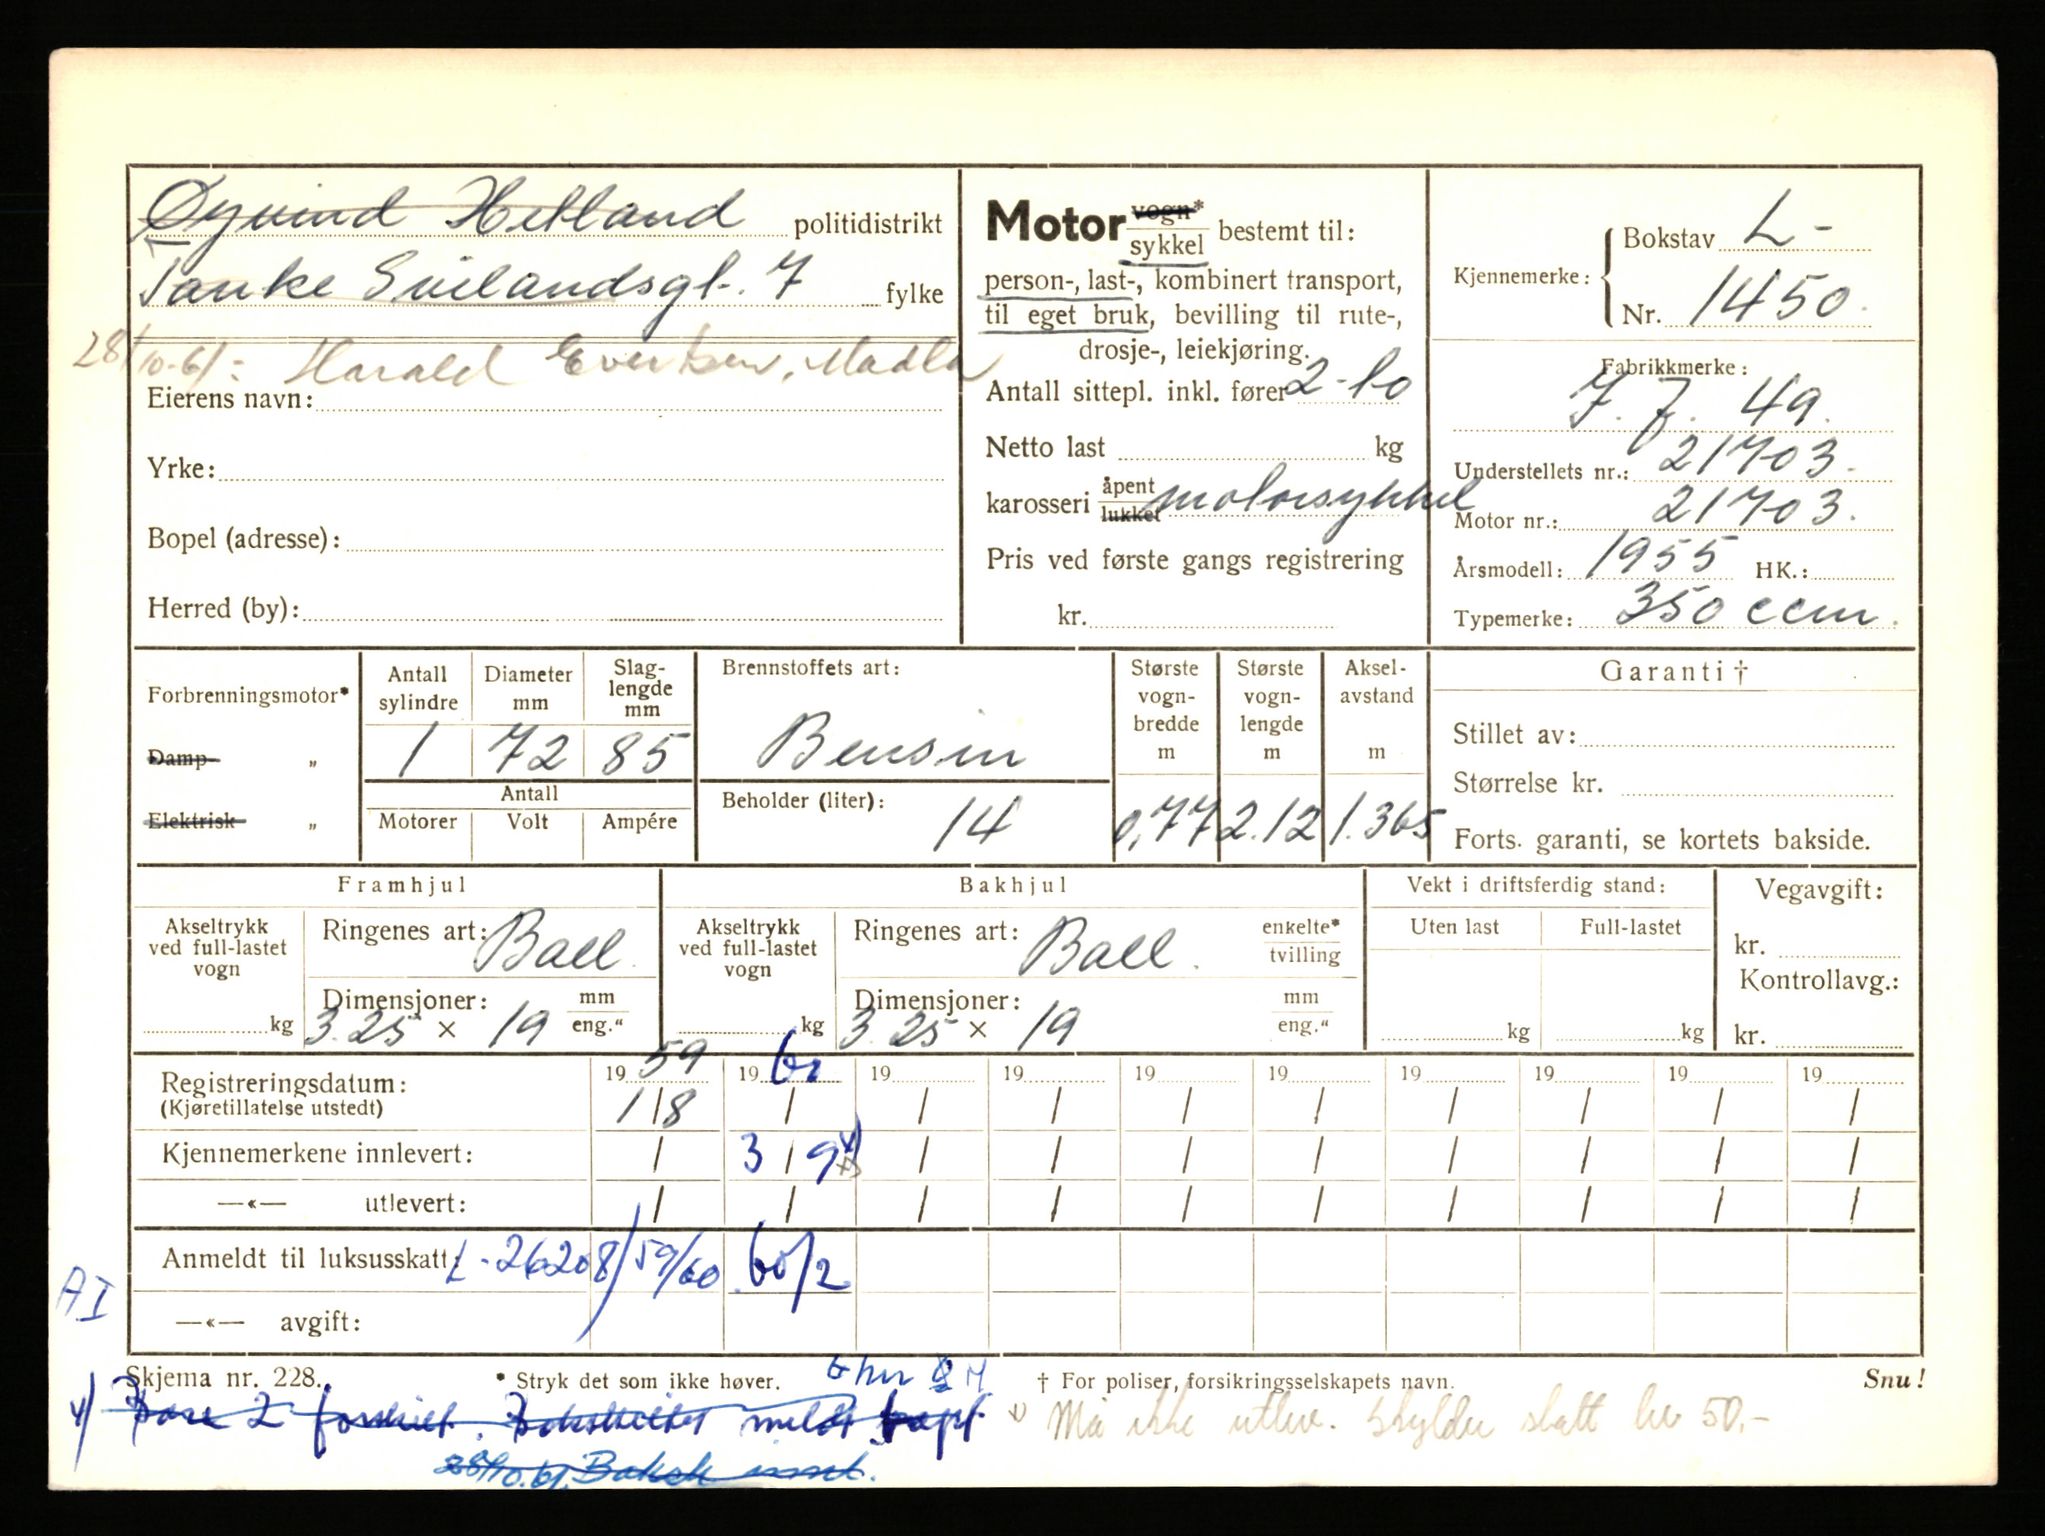 Øyvind Hetland politidistrikt
Tanke Svilandsgt. 7 fylke
28/10-61: Harald Evertsen, Madla
Eierens navn:
Yrke:
Bopel (adresse):
Herred (by):
Motor vogn* sykkel bestemt til:
person-, last-, kombinert transport,
til eget bruk, bevilling til rute-,
drosje-, leiekjøring.
Antall sittepl. inkl. fører 2-to
Netto last kg
karosseri åpent lukket motorsykkel
Pris ved første gangs registrering
kr.
Kjennemerke: Bokstav L-
Nr. 1450.
Fabrikkmerke:
J.J. 49.
Understellets nr.: 21703.
Motor nr.: 21703.
Årsmodell: 1955 HK.:
Typemerke: 350 ccm.
Forbrenningsmotor*
Damp- „
Elektrisk- „
Antall sylindre 1
Diameter mm 72
Slag-lengde mm 85
Antall
Motorer Volt Ampére
Brennstoffets art:
Bensin
Beholder (liter):
14
Største vogn-bredde m 0,77
Største vogn-lengde m 2.12
Aksel-avstand m 1.365
Garanti †
Stillet av:
Størrelse kr.
Forts. garanti, se kortets bakside.
Framhjul
Akseltrykk ved full-lastet vogn kg
Ringenes art: Ball.
Dimensjoner: mm eng.“
3.25 × 19
Bakhjul
Akseltrykk ved full-lastet vogn kg
Ringenes art: Ball. enkelte* tvilling
Dimensjoner: mm eng.“
3.25 × 19
Vekt i driftsferdig stand:
Uten last Full-lastet
kg kg
Vegavgift:
kr.
Kontrollavg.:
kr.
Registreringsdatum: 19 59 19 61 19 19 19 19 19 19 19 19
(Kjøretillatelse utstedt) 1/8 / / / / / / / / /
Kjennemerkene innlevert: / 3/9 / / / / / / / /
—«— utlevert: / / / / / / / / / /
Anmeldt til luksusskatt: L-26208/59/60 60/2
—«— avgift:
AI
Skjema nr. 228. * Stryk det som ikke høver. † For poliser, forsikringsselskapets navn. Snu!
Bare 2 Bakskiltet meldt tapt
Må ikke utlev. Skylder skatt kr 50,-
28/10.61. Baksk innl.